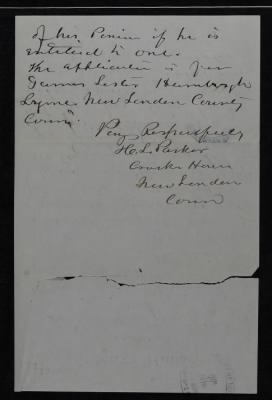 of his Pension if he is
entitled to one.
The application is for
James Lester Hamburgh
Lyme New London County
Conn.
Very Respectfully
H. L. Parker
Crocker House
New London
Conn